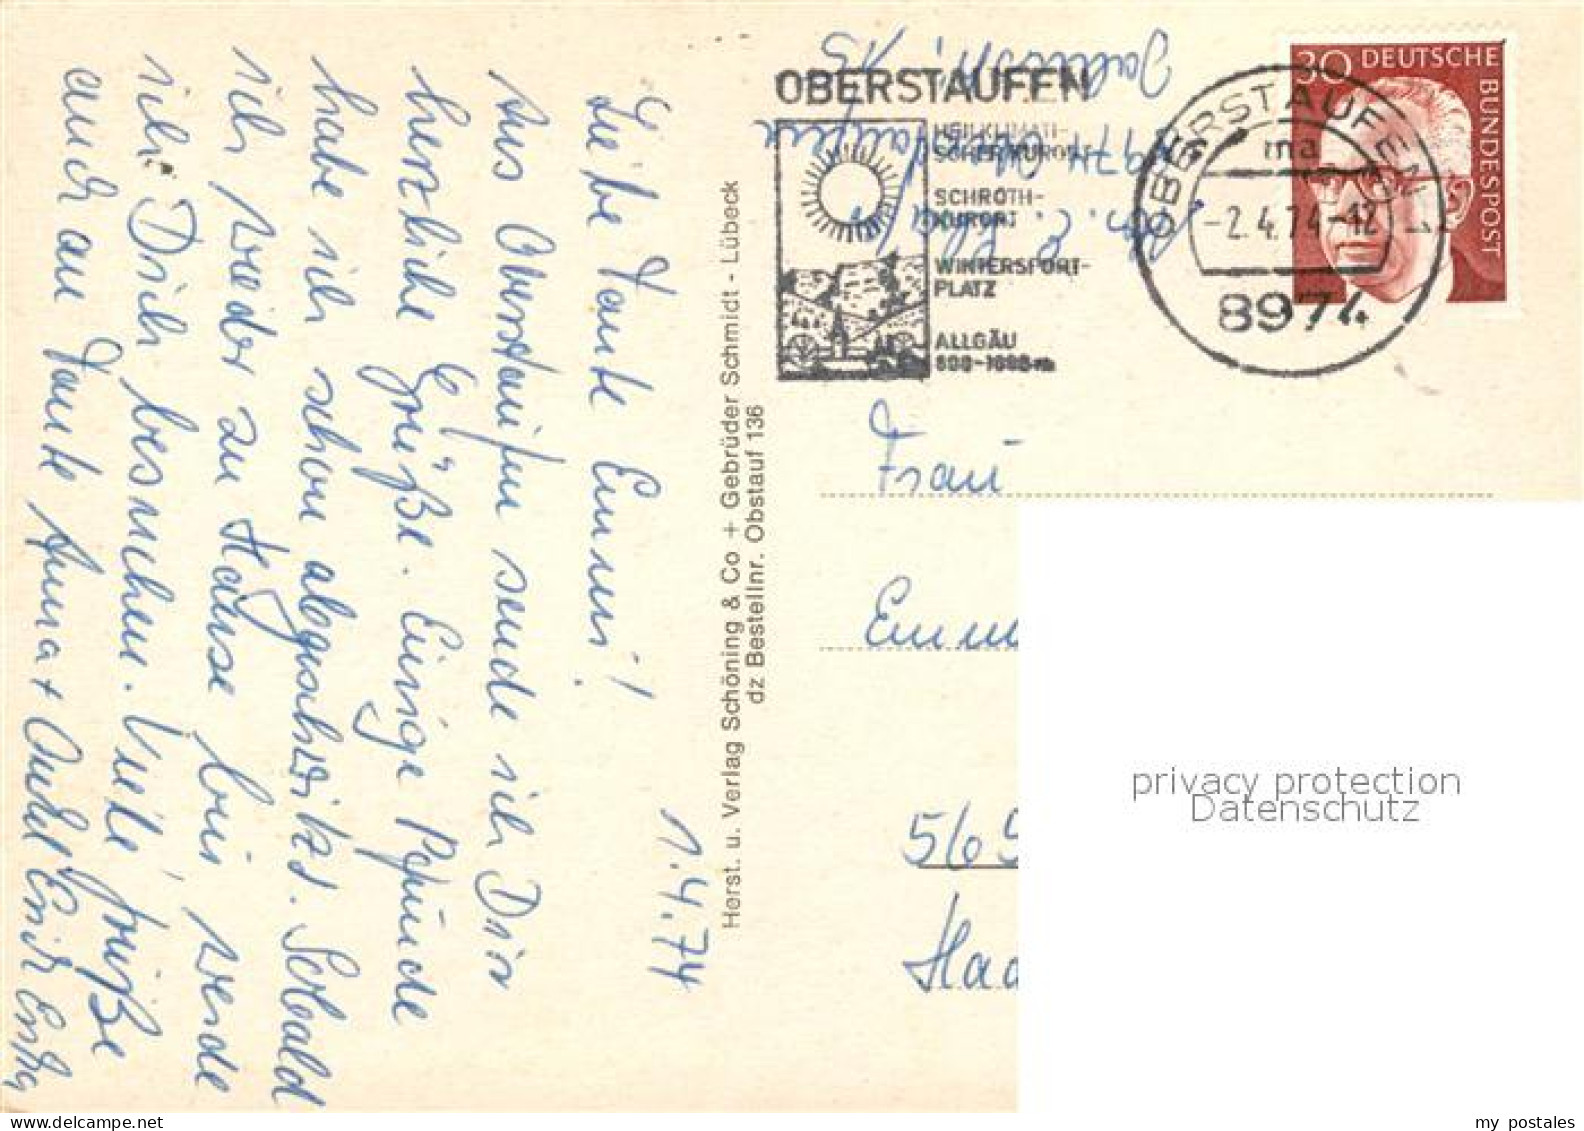 1.4.74
Liebe Tante Emmi!
Aus Oberstaufen sende ich Dir
herzliche Grüße. Einige Pfunde
habe ich schon abgeschwitzt. Sobald
ich wieder zu Hause bin, werde
ich Dich besuchen. Viele Grüße
auch an Tante Anna +
Horst. u. Verlag Schöning & Co + Gebrüder Schmidt - Lübeck
dz Bestellnr. Obstauf 136
OBERSTAUFEN
HEILKLIMATI-
SCHER KURORT
SCHROTH-
KURORT
WINTERSPORT-
PLATZ
ALLGÄU
OBERSTAUFEN
ma
-2.4.74-12
8974
30 DEUTSCHE
BUNDESPOST
8974
Frau
Emm
565
Haa
privacy protection
Datenschutz
my postales
www.delcampe.net